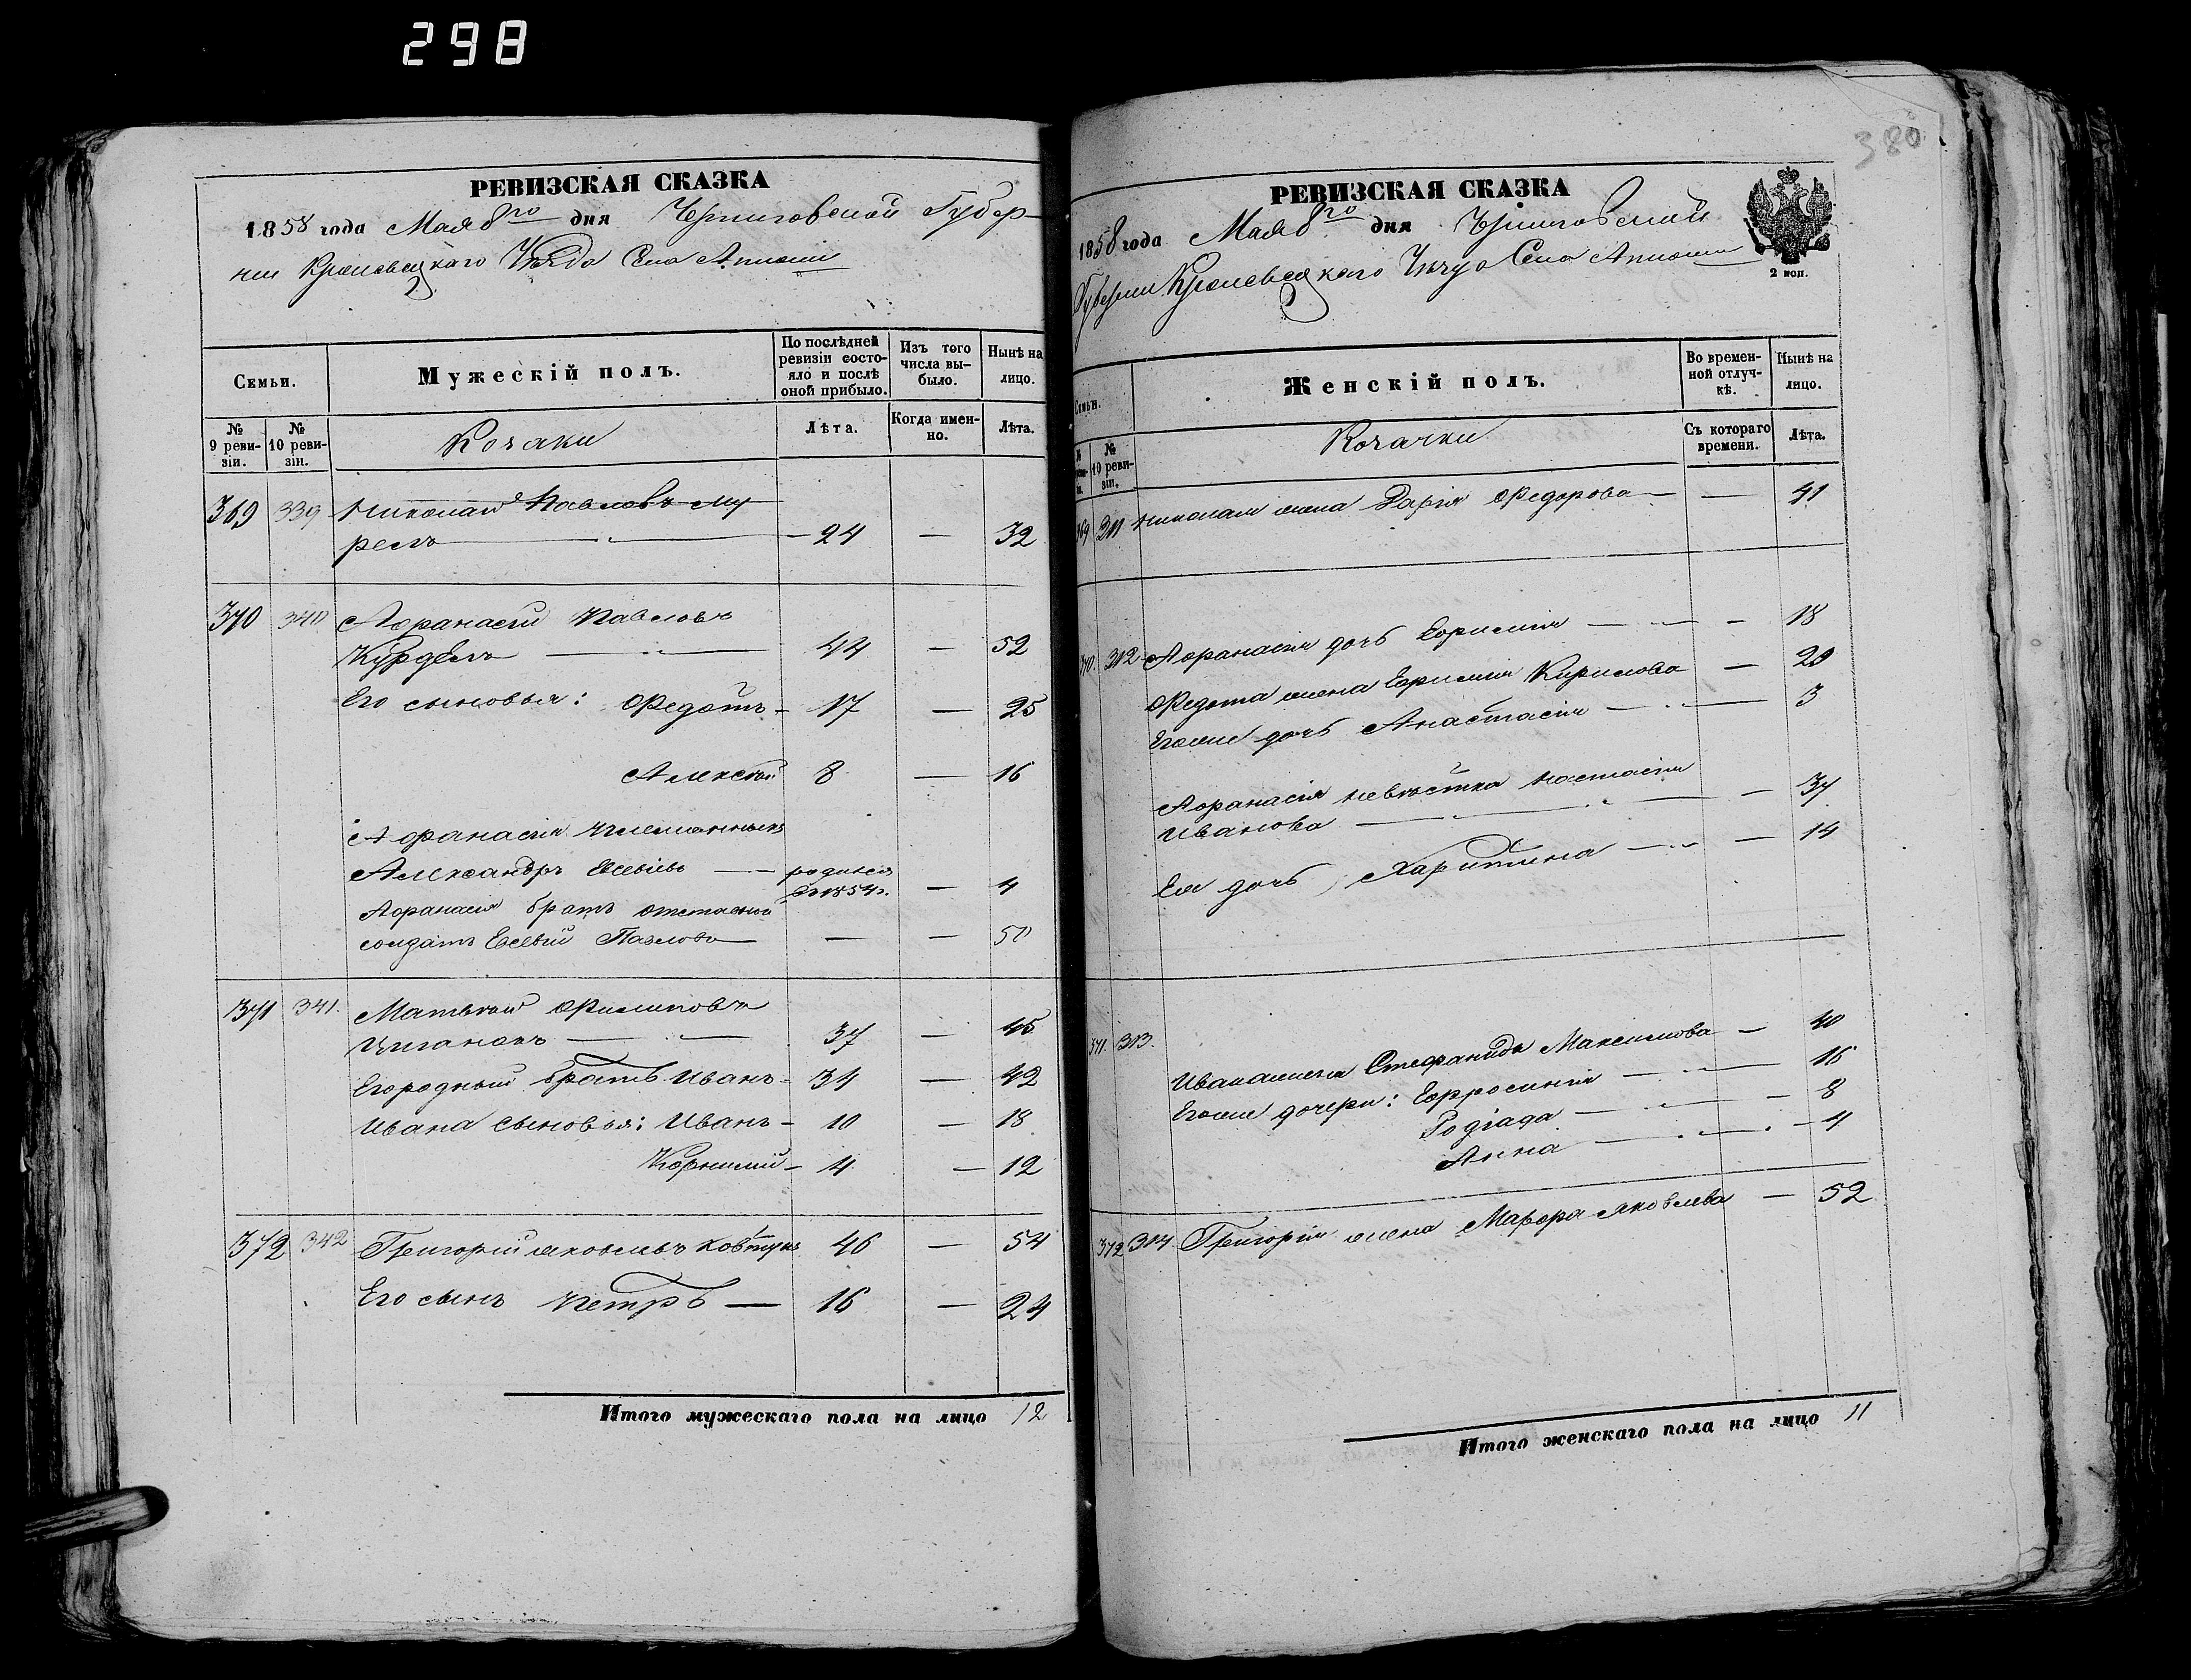 298
РЕВИЗСКАЯ СКАЗКА
1858 года Мая 8го дня Черниговской Губер-
нии Кролевецкаго Уѣзда Села
Семьи.
Мужескій полъ.
По послѣдней ревизіи состояло и послѣ оной прибыло.
Изъ того числа выбыло.
Нынѣ на лицо.
№ 9 ревизіи.
№ 10 ревизіи.
Козаки
Лѣта.
Когда именно.
Лѣта.
369 339 Николай Павловъ
— 24 — 32
370 340 Афанасій Павловъ
Курдель — 44 — 52
Его сыновья: Федотъ — 17 — 25
Алексѣй 8 — 16
Афанасія племянникъ
Александръ Евсевіевъ — родился
въ 1854г. — 4
Афанасія братъ отставной
солдатъ Евсевій Павловъ — — — 50
371 341. Матвѣй Филиповъ
Циганокъ — 37 — 45
Его родный братъ Иванъ — 34 — 42
Ивана сыновья: Иванъ — 10 — 18
Корнилій — 4 — 12
372 342 Григорій Яковлевъ Ковтунъ 46 — 54
Его сынъ Петръ — 16 — 24
Итого мужескаго пола на лицо 12
380
РЕВИЗСКАЯ СКАЗКА
1858 года Мая 8го дня Черниговской
Губерніи Кролевецкаго Уѣзда Села
2 коп.
Семьи.
Женскій полъ.
Во временной отлучкѣ.
Нынѣ на лицо.
№ 10 ревизіи.
Козачки
Съ котораго времени.
Лѣта.
369 311 Николая жена Дарія Федорова — — 41
370. 312 Афанасія дочь Евфимія — — 18
Федота жена Евфимія Кирилова — 20
Его же дочь Анастасія — 3
Афанасія невѣстка Настасія
Иванова — — 37
Ея дочь Харитина — — 14
371. 313.
Ивана жена Стефанида Максимова — 40
Его же дочери: Евфросинія — 16
— 8
Анна — 4
372 314 Григорія жена Марфа Яковлева — 52
Итого женскаго пола на лицо 11